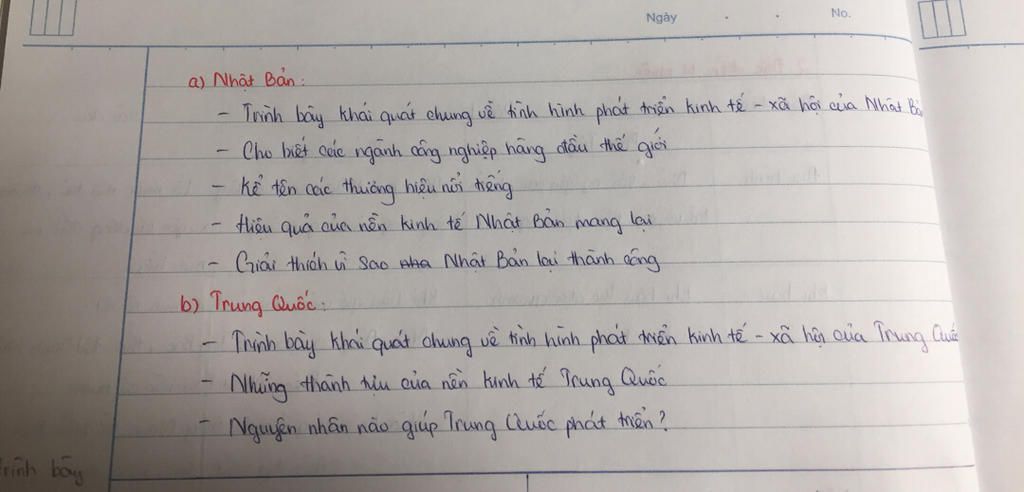 Ngày . . No.
a) Nhật Bản:
- Trình bày khái quát chung về tình hình phát triển kinh tế - xã hội của Nhật Bản
- Cho biết các ngành công nghiệp hàng đầu thế giới
- Kể tên các thương hiệu nổi tiếng
- Hiệu quả của nền kinh tế Nhật Bản mang lại
- Giải thích vì sao nha Nhật Bản lại thành công
b) Trung Quốc:
- Trình bày khái quát chung về tình hình phát triển kinh tế - xã hội của Trung Quốc
- Những thành tựu của nền kinh tế Trung Quốc
- Nguyên nhân nào giúp Trung Quốc phát triển?
trình bày